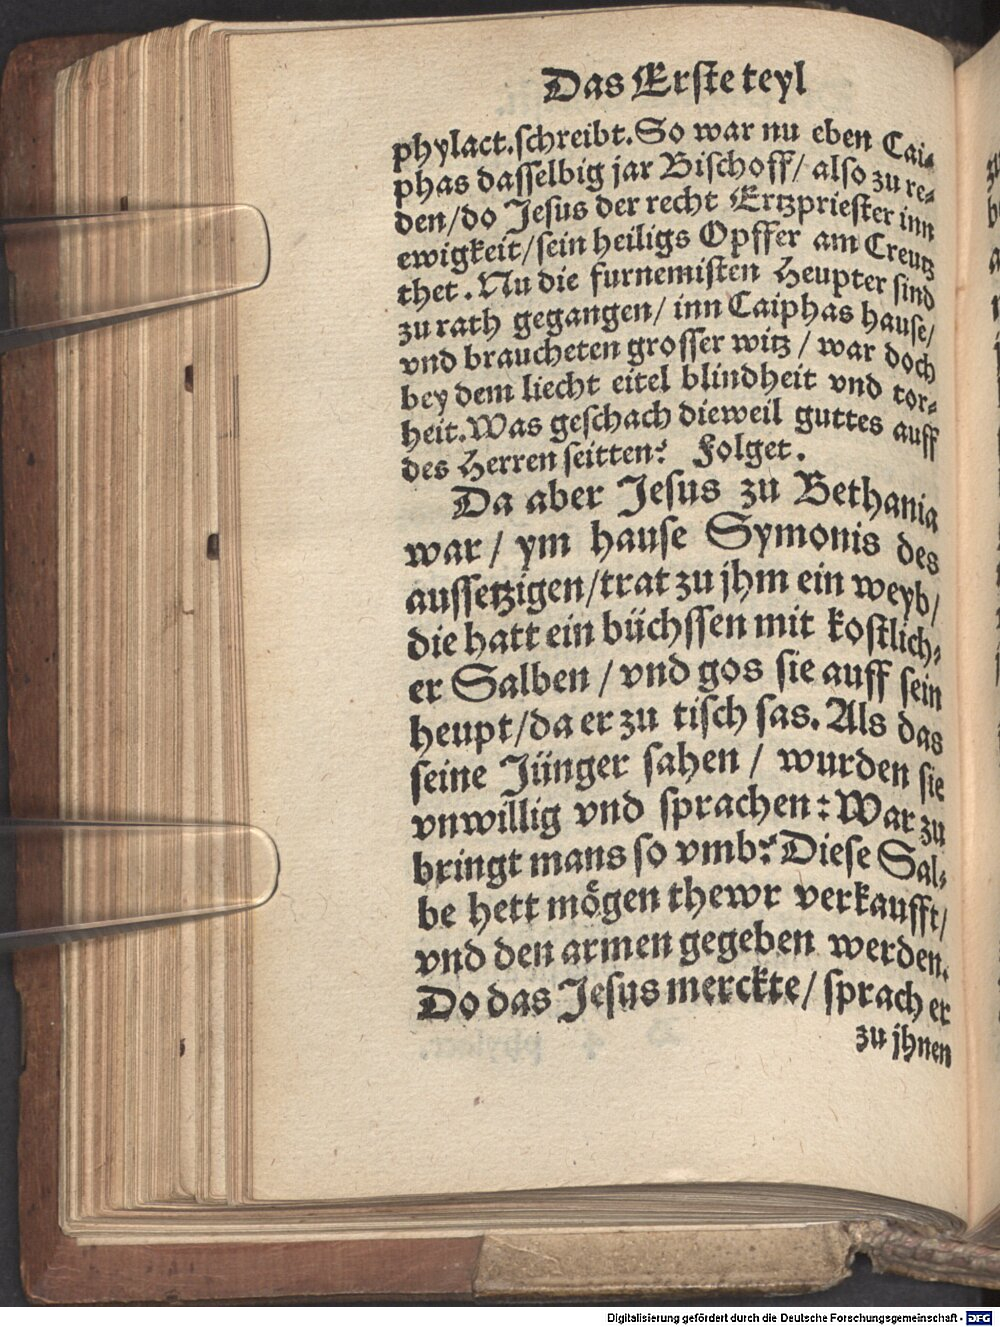 Das Erste teyl
phylact.schreibt.So war nu eben Cai⸗
phas dasselbig jar Bischoff/ also zu re⸗
den/do Jesus der recht Ertzpriester inn
ewigkeit/sein heiligs Opffer am Creutz
thet. Nu die furnemisten Heupter sind
zu rath gegangen/ inn Caiphas hause/
vnd braucheten grosser witz / war doch
bey dem liecht eitel blindheit vnd tor⸗
heit.Was geschach dieweil guttes auff
des Herren seitten? Folget.
Da aber Jesus zu Bethania
war / ym hause Symonis des
aussetzigen/trat zu jhm ein weyb/
die hatt ein büchssen mit kostlich⸗
er Salben / vnd gos sie auff sein
heupt/da er zu tisch sas. Als das
seine Jünger sahen / wurden sie
vnwillig vnd sprachen: War zu
bringt mans so vmb? Diese Sal⸗
be hett mögen thewr verkaufft/
vnd den armen gegeben werden.
Do das Jesus merckte/ sprach er
zu jhnen
Digitalisierung gefördert durch die Deutsche Forschungsgemeinschaft - DFG